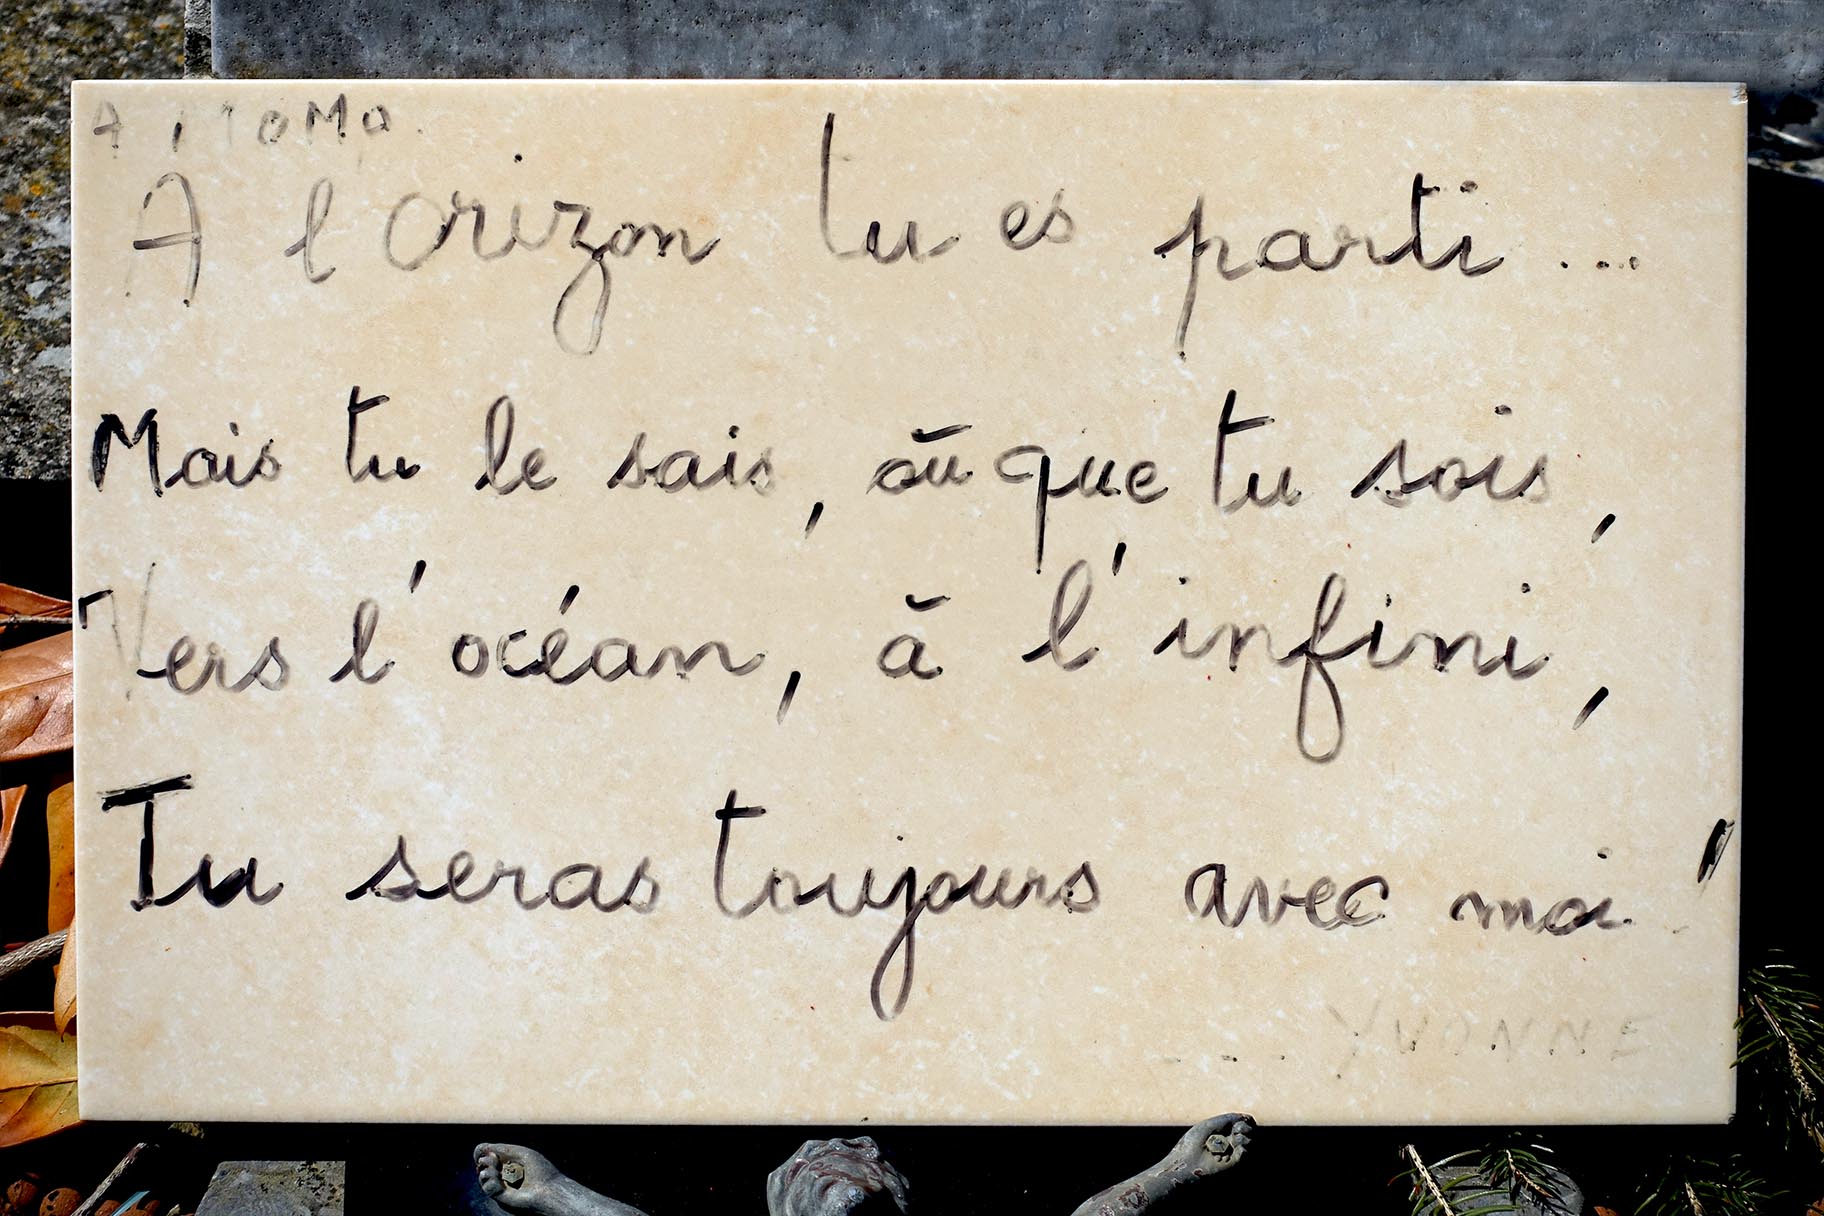 A MOMO.
A l'orizon tu es parti...
Mais tu le sais, où que tu sois,
Vers l'océan, à l'infini,
Tu seras toujours avec moi !
... YVONNE